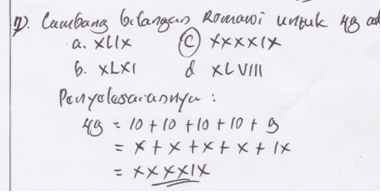 7). Lambang bilangan Romawi untuk 49 ad
a. XLIX   c. XXXXIX
b. XLXI   d. XLVIII
Penyelesaiannya :
49 = 10 + 10 + 10 + 10 + 9
= X + X + X + X + IX
= XXXXIX